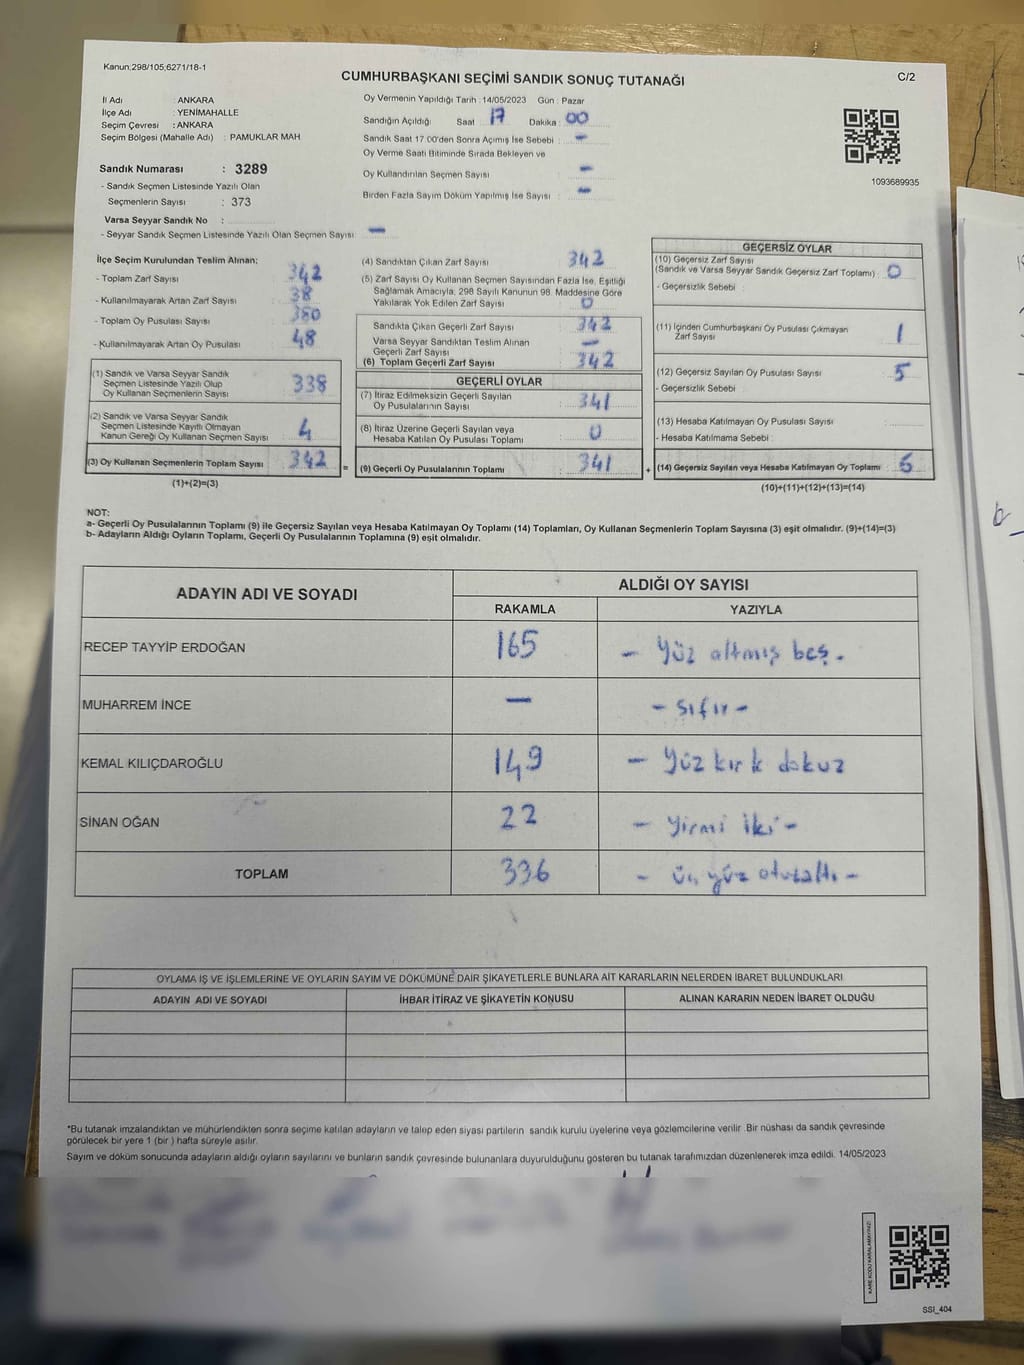 Kanun:298/105;6271/18-1
CUMHURBAŞKANI SEÇİMİ SANDIK SONUÇ TUTANAĞI
C/2
İl Adı : ANKARA
İlçe Adı : YENİMAHALLE
Seçim Çevresi : ANKARA
Seçim Bölgesi (Mahalle Adı) : PAMUKLAR MAH
Sandık Numarası : 3289
- Sandık Seçmen Listesinde Yazılı Olan
Seçmenlerin Sayısı : 373
Varsa Seyyar Sandık No :
- Seyyar Sandık Seçmen Listesinde Yazılı Olan Seçmen Sayısı –
Oy Vermenin Yapıldığı Tarih : 14/05/2023 Gün : Pazar
Sandığın Açıldığı Saat : 17 Dakika : 00
Sandık Saat 17.00'den Sonra Açımış İse Sebebi : –
Oy Verme Saati Bitiminde Sırada Bekleyen ve
Oy Kullandırılan Seçmen Sayısı –
Birden Fazla Sayım Döküm Yapılmış İse Sayısı : –
1093689935
İlçe Seçim Kurulundan Teslim Alınan:
- Toplam Zarf Sayısı : 342
- Kullanılmayarak Artan Zarf Sayısı : 38
- Toplam Oy Pusulası Sayısı : 380
- Kullanılmayarak Artan Oy Pusulası : 48
(1) Sandık ve Varsa Seyyar Sandık
Seçmen Listesinde Yazılı Olup
Oy Kullanan Seçmenlerin Sayısı : 338
(2) Sandık ve Varsa Seyyar Sandık
Seçmen Listesinde Kayıtlı Olmayan
Kanun Gereği Oy Kullanan Seçmen Sayısı : 4
(3) Oy Kullanan Seçmenlerin Toplam Sayısı : 342 =
(1)+(2)=(3)
(4) Sandıktan Çıkan Zarf Sayısı : 342
(5) Zarf Sayısı Oy Kullanan Seçmen Sayısından Fazla İse, Eşitliği
Sağlamak Amacıyla, 298 Sayılı Kanunun 98. Maddesine Göre
Yakılarak Yok Edilen Zarf Sayısı : 0
Sandıkta Çıkan Geçerli Zarf Sayısı : 342
Varsa Seyyar Sandıktan Teslim Alınan
Geçerli Zarf Sayısı : –
(6) Toplam Geçerli Zarf Sayısı : 342
GEÇERLİ OYLAR
(7) İtiraz Edilmeksizin Geçerli Sayılan
Oy Pusulalarının Sayısı : 341
(8) İtiraz Üzerine Geçerli Sayılan veya
Hesaba Katılan Oy Pusulası Toplamı : 0
(9) Geçerli Oy Pusulalarının Toplamı : 341 +
GEÇERSİZ OYLAR
(10) Geçersiz Zarf Sayısı
(Sandık ve Varsa Seyyar Sandık Geçersiz Zarf Toplamı) : 0
- Geçersizlik Sebebi :
(11) İçinden Cumhurbaşkanı Oy Pusulası Çıkmayan
Zarf Sayısı : 1
(12) Geçersiz Sayılan Oy Pusulası Sayısı : 5
- Geçersizlik Sebebi :
(13) Hesaba Katılmayan Oy Pusulası Sayısı :
- Hesaba Katılmama Sebebi :
(14) Geçersiz Sayılan veya Hesaba Katılmayan Oy Toplamı : 6
(10)+(11)+(12)+(13)=(14)
NOT:
a- Geçerli Oy Pusulalarının Toplamı (9) ile Geçersiz Sayılan veya Hesaba Katılmayan Oy Toplamı (14) Toplamları, Oy Kullanan Seçmenlerin Toplam Sayısına (3) eşit olmalıdır. (9)+(14)=(3)
b- Adayların Aldığı Oyların Toplamı, Geçerli Oy Pusulalarının Toplamına (9) eşit olmalıdır.
ADAYIN ADI VE SOYADI
ALDIĞI OY SAYISI
RAKAMLA YAZIYLA
RECEP TAYYİP ERDOĞAN 165 – Yüz altmış beş.
MUHARREM İNCE – – sıfır –
KEMAL KILIÇDAROĞLU 149 – Yüz kırk dokuz
SİNAN OĞAN 22 – yirmi iki –
TOPLAM 336 – üç yüz otuzaltı –
OYLAMA İŞ VE İŞLEMLERİNE VE OYLARIN SAYIM VE DÖKÜMÜNE DAİR ŞİKAYETLERLE BUNLARA AİT KARARLARIN NELERDEN İBARET BULUNDUKLARI
ADAYIN ADI VE SOYADI İHBAR İTİRAZ VE ŞİKAYETİN KONUSU ALINAN KARARIN NEDEN İBARET OLDUĞU
*Bu tutanak imzalandıktan ve mühürlendikten sonra seçime katılan adayların ve talep eden siyasi partilerin sandık kurulu üyelerine veya gözlemcilerine verilir. Bir nüshası da sandık çevresinde
görülecek bir yere 1 (bir ) hafta süreyle asılır.
Sayım ve döküm sonucunda adayların aldığı oyların sayılarını ve bunların sandık çevresinde bulunanlara duyurulduğunu gösteren bu tutanak tarafımızdan düzenlenerek imza edildi. 14/05/2023
KARE KODU KARALAMAYINIZ!
SSI_404